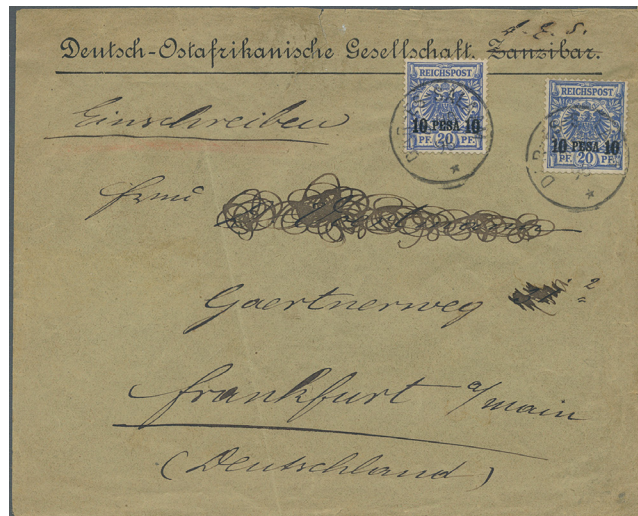 D. E. S.
Deutsch-Ostafrikanische Gesellschaft. Zanzibar.
Einschreiben
REICHSPOST
10 PESA 10
PF. 20 PF.
REICHSPOST
10 PESA 10
PF. 20 PF.
Frau
Gaertnerweg 2
Frankfurt a/main
(Deutschland)